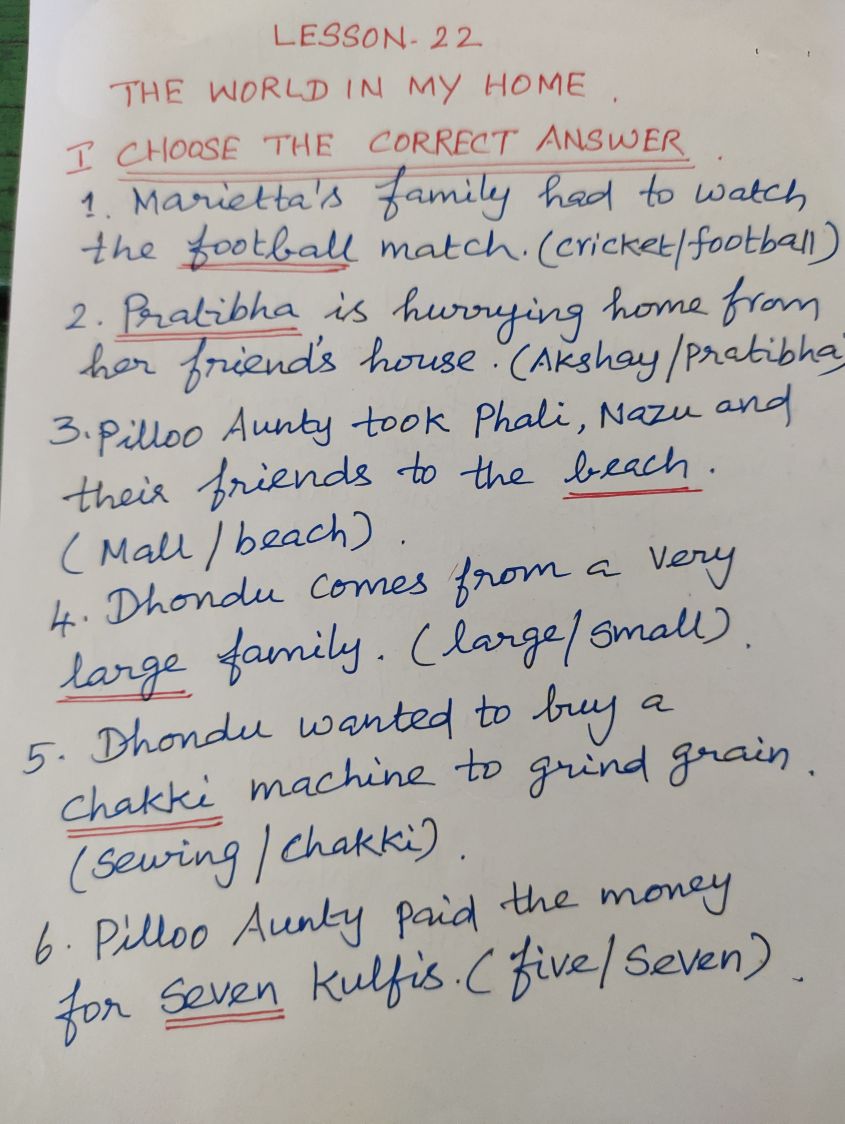 LESSON-22
THE WORLD IN MY HOME.
I CHOOSE THE CORRECT ANSWER.
1. Marietta's family had to watch
the football match. (cricket/football)
2. Pratibha is hurrying home from
her friend's house. (Akshay/Pratibha)
3. Pilloo Aunty took Phali, Nazu and
their friends to the beach.
(Mall/beach).
4. Dhondu comes from a very
large family. (large/small).
5. Dhondu wanted to buy a
chakki machine to grind grain.
(sewing/chakki).
6. Pilloo Aunty paid the money
for seven kulfis. (five/seven).